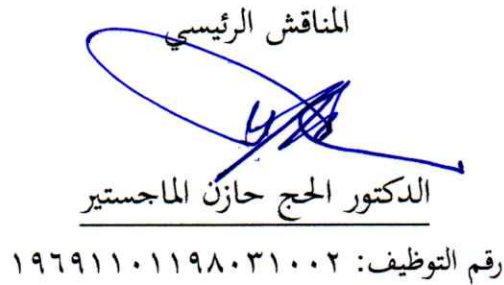 المناقش الرئيسي
الدكتور الحج حازن الماجستير
رقم التوظيف: ١٩٦٩١١٠١١٩٨٠٣١٠٠٢